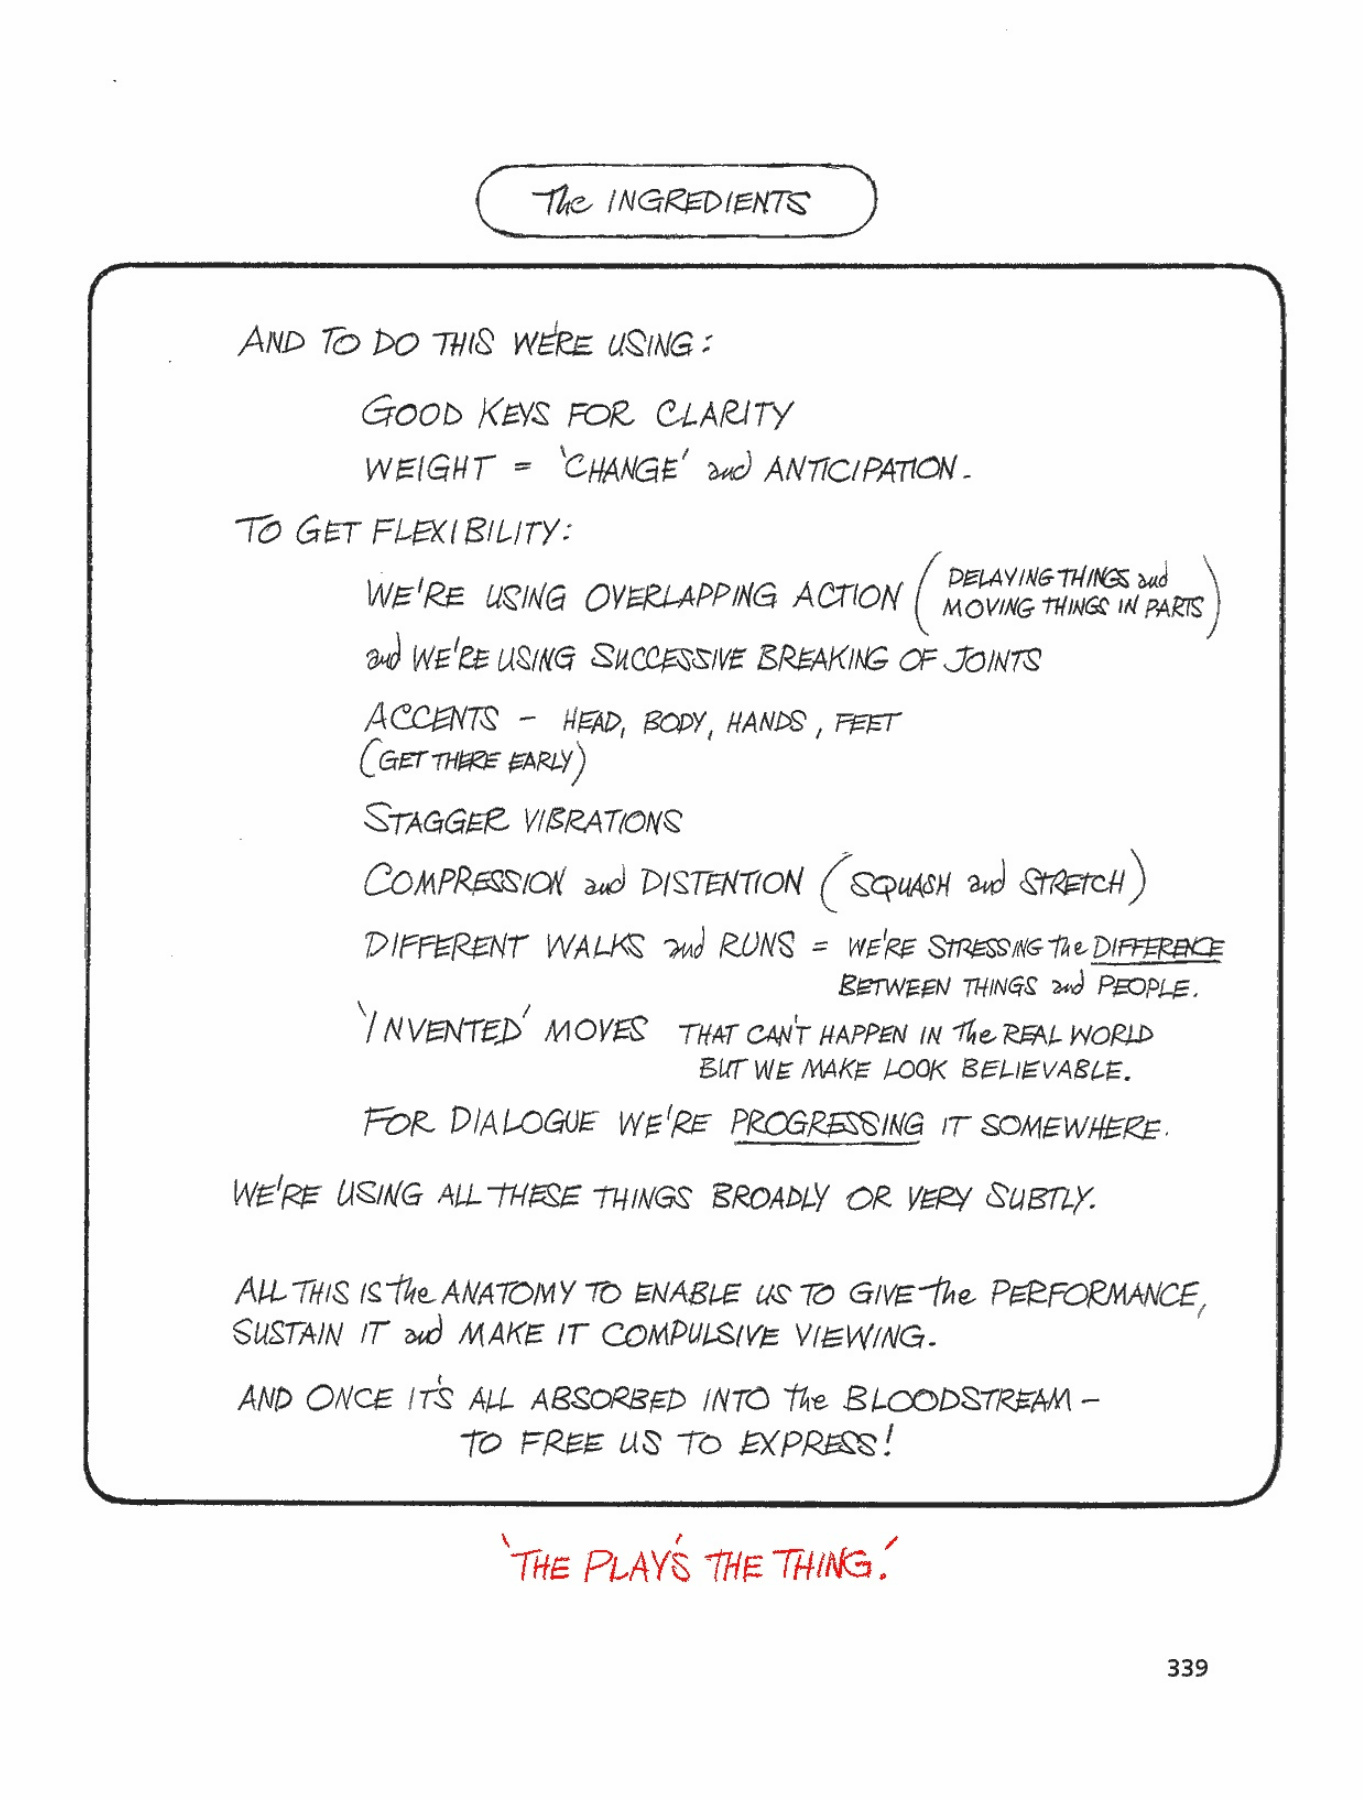 The INGREDIENTS
AND TO DO THIS WE'RE USING:
GOOD KEYS FOR CLARITY
WEIGHT = 'CHANGE' and ANTICIPATION.
TO GET FLEXIBILITY:
WE'RE USING OVERLAPPING ACTION (DELAYING THINGS and
MOVING THINGS IN PARTS)
and WE'RE USING SUCCESSIVE BREAKING OF JOINTS
ACCENTS - HEAD, BODY, HANDS, FEET
(GET THERE EARLY)
STAGGER VIBRATIONS
COMPRESSION and DISTENTION (SQUASH and STRETCH)
DIFFERENT WALKS and RUNS = WE'RE STRESSING The DIFFERENCE
BETWEEN THINGS and PEOPLE.
'INVENTED' MOVES THAT CAN'T HAPPEN IN The REAL WORLD
BUT WE MAKE LOOK BELIEVABLE.
FOR DIALOGUE WE'RE PROGRESSING IT SOMEWHERE.
WE'RE USING ALL THESE THINGS BROADLY OR VERY SUBTLY.
ALL THIS IS the ANATOMY TO ENABLE US TO GIVE the PERFORMANCE,
SUSTAIN IT and MAKE IT COMPULSIVE VIEWING.
AND ONCE IT'S ALL ABSORBED INTO the BLOODSTREAM -
TO FREE US TO EXPRESS!
'THE PLAY'S THE THING.'
339